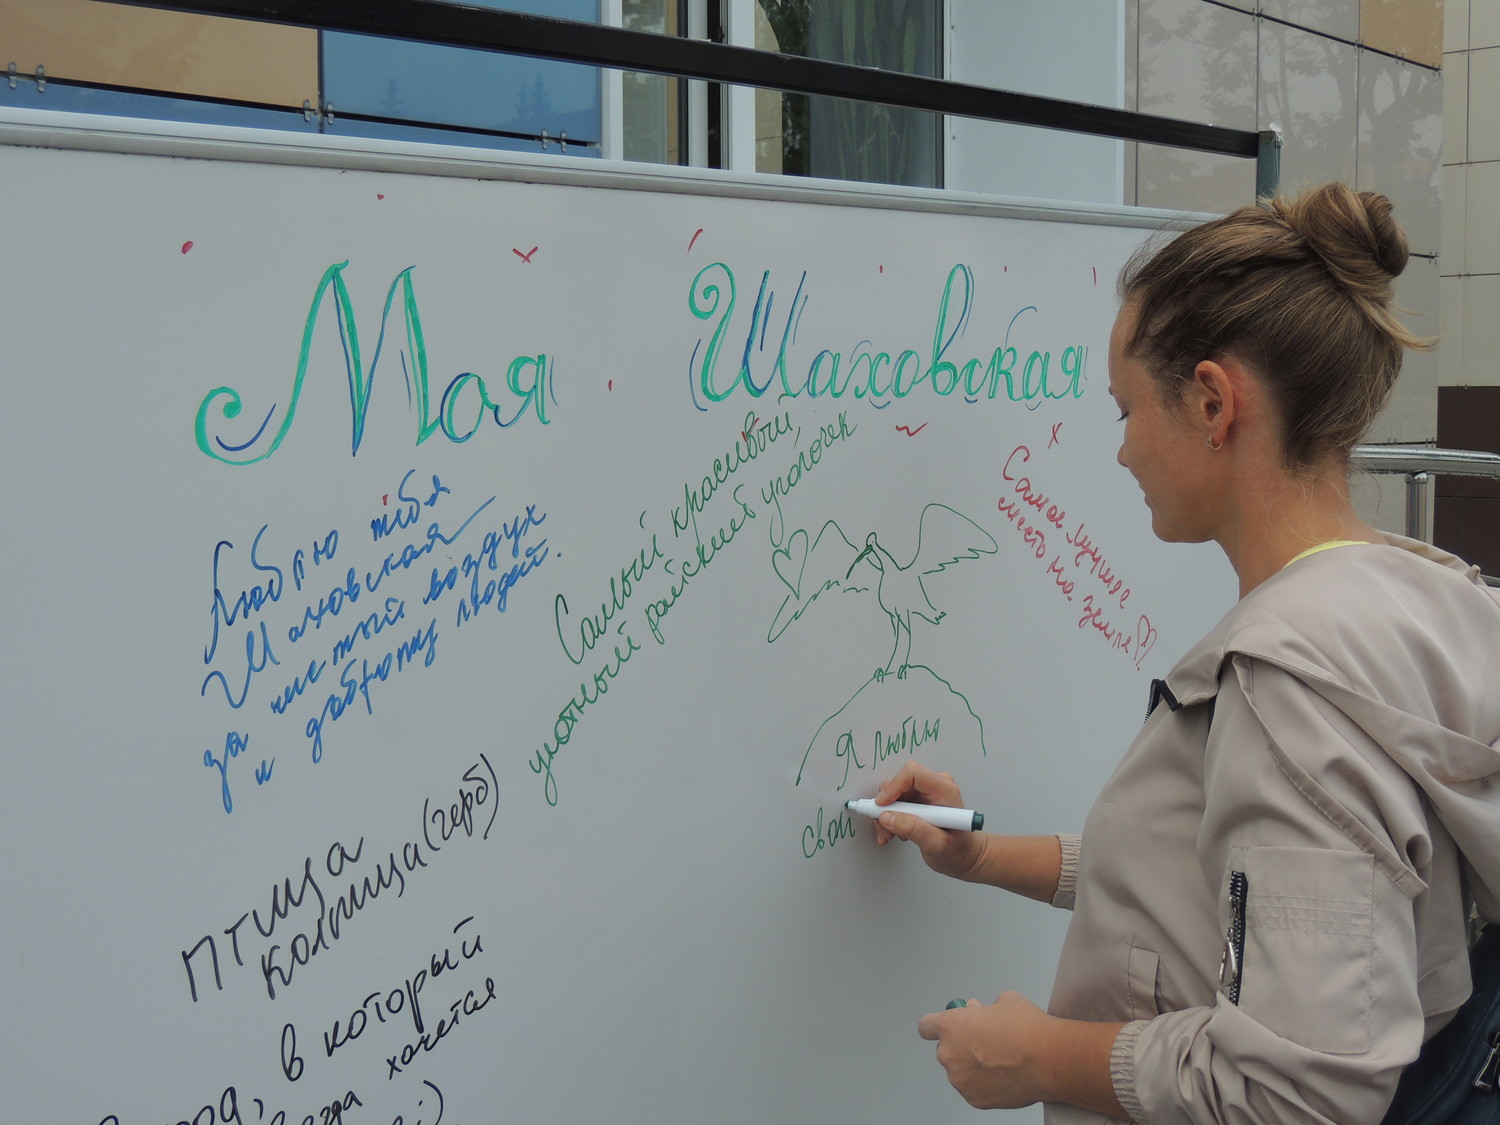 Моя Шаховская
Люблю тебя
Шаховская
за чистый воздух
и доброту людей.
Самый красивый,
уютный райский уголочек
Самое лучшее
место на земле
Я люблю
свой
птица
колпица (герб)
в который
хочется